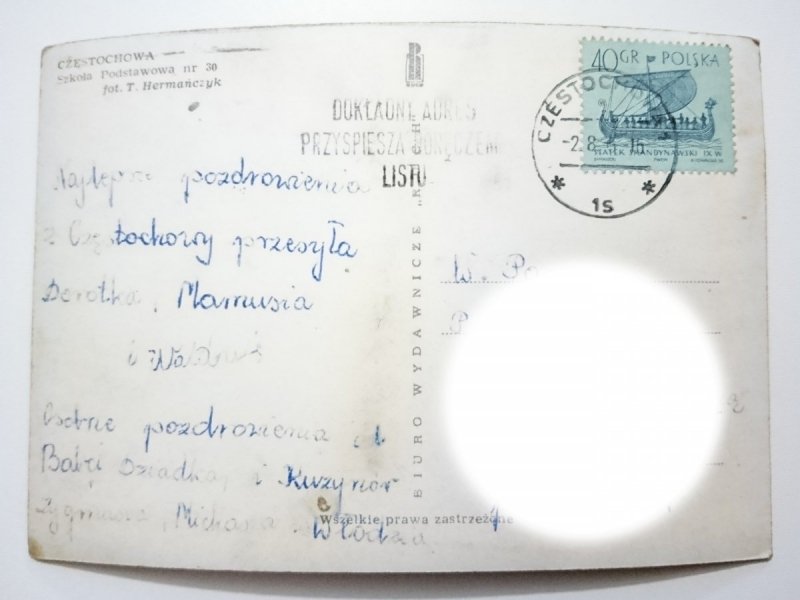 CZĘSTOCHOWA
Szkoła Podstawowa nr 30
fot. T. Hermańczyk
DOKŁADNY ADRES
PRZYSPIESZA DORĘCZENI
LISTU
40 GR POLSKA
STATEK SKANDYNAWSKI IX W
CZĘSTOCH
-2.8.
15
* 1s *
Najlepsze pozdrowienia
z Częstochowy przesyła
Dorotka, Mamusia
i Walduś
Osobne pozdrowienia od
Babci Dziadka, i Kuzynów
Zygmusia, Michasia Włodzia
BIURO WYDAWNICZE „RUCH"
W. P
Wszelkie prawa zastrzeżone